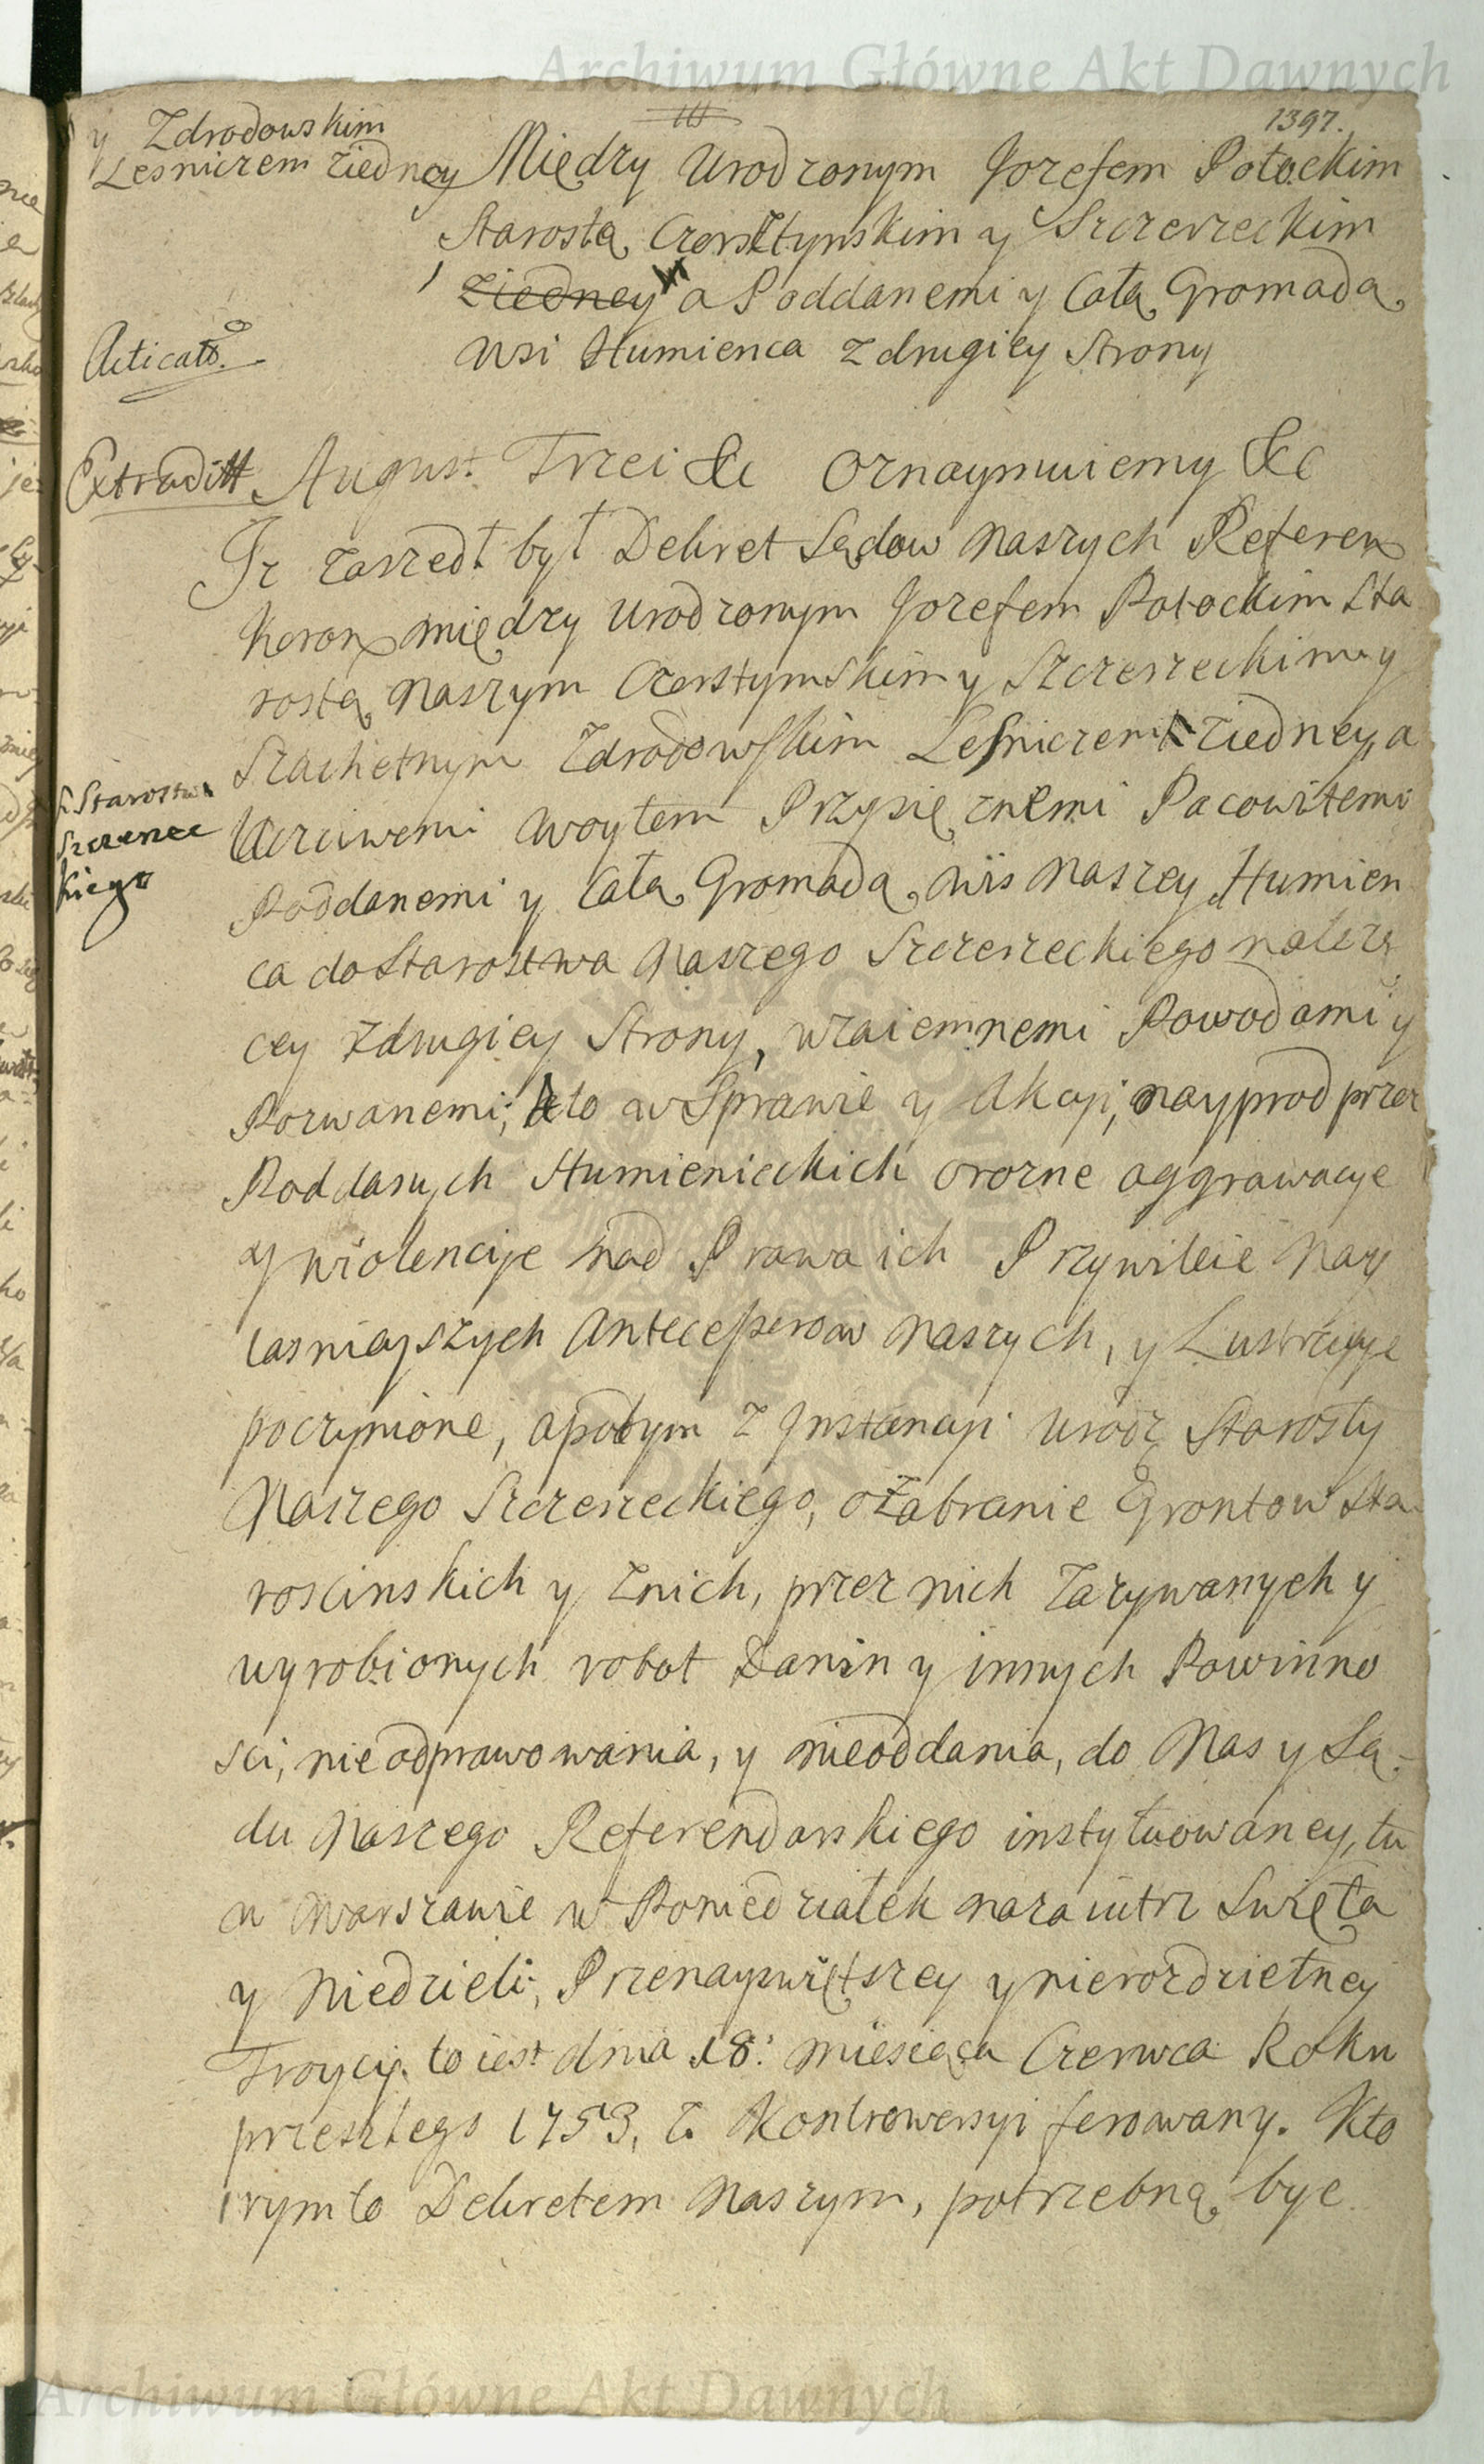 Archiwum Główne Akt Dawnych
1397.
y Zdrodowskim
Lesniczem ziedney
Między Urodzonym Jozefem Potockim
Starostą Czorsztynskim y Szczerzeckim
ziedney a Poddanemi y Całą Gromadą
wsi Humienca z drugiey Strony
Acticato.
Extradit
August Trzei &c Oznaymuiemy &c
Iz zaszedł był Dekret Sądow Naszych Referen
Koron między Urodzonym Jozefem Potockim Sta
rostą Naszym Czorstynskim y Szczerzeckim y
Szachetnym Zdrodowskim Lesniczem ziedney, a
S. Starostwa
Szczerzec
kiego
Uczciwemi Woytem Przysiężnemi Pacowitemi
Poddanemi y Całą Gromadą wis Naszey Humien
ca do Starostwa Naszego Szczerzeckiego należą
cey zdrugiey Strony, wzaiemnemi Powodami y
Pozwanemi; a to w Sprawie y Akcyi, nayprod przez
Poddanych Humienieckich o rozne aggrawacye
y wiolencye nad Prawa ich Przywileie Nay
iasnieyszych Antecessorow Naszych, y Lustracye
poczynione, a potym z Instancyi Urodz Starosty
Naszego Szczerzeckiego, o Zabranie Grontow Sta
roscinskich y znich, przez nich Zazywanych y
wyrobionych robot Danin y innych Powinno
sci, nie odprawowania, y nieoddania, do Nas y Są-
du Naszego Referendarskiego instytuowaney, tu
w Warszawie w Poniedziałek nazaiutrz Swięta
y Niedzieli, Przenayswiętszey y nierozdzielney
Troycy. to iest dnia 18: miesiąca Czerwca Roku
przeszłego 1753, z Kontrowersyi ferowany. Kto
rym to Dekretem Naszym, potrzebną byc
Archiwum Główne Akt Dawnych